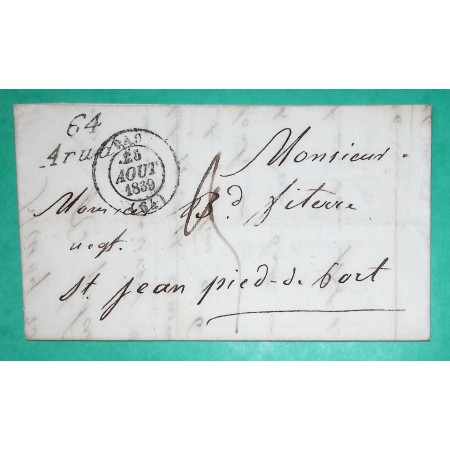 64
Arudy
PAU
25
AOUT
1839
(64)
Monsieur
Monsieur Bd fiterre
negt.
St. Jean pied-de-Port